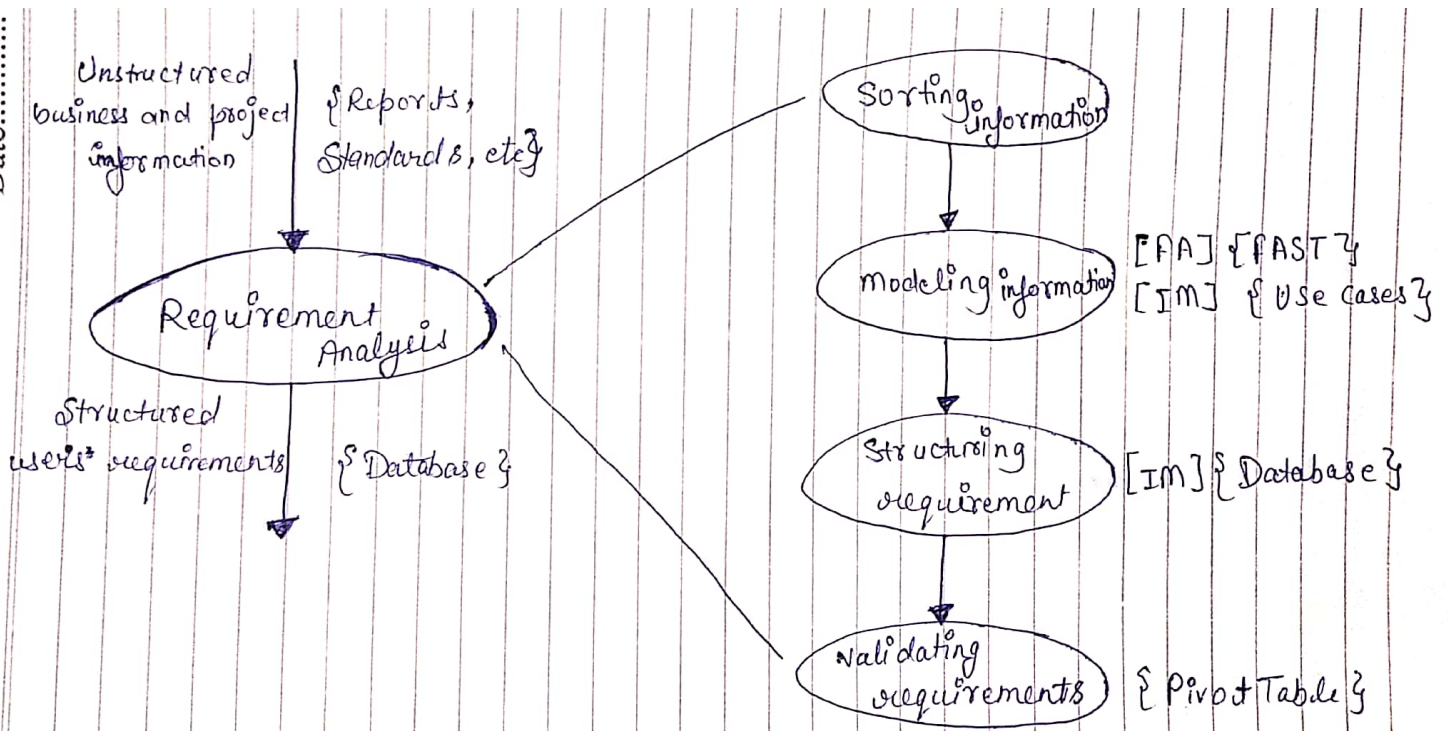 Date..............
Unstructured
business and project
information
{Reports,
Standards, etc}
Requirement
Analysis
Structured
users' requirements
{Database}
Sorting
information
Modeling information
[FA] {FAST}
[IM] {Use Cases}
Structuring
requirement
[IM] {Database}
Validating
requirements
{Pivot Table}